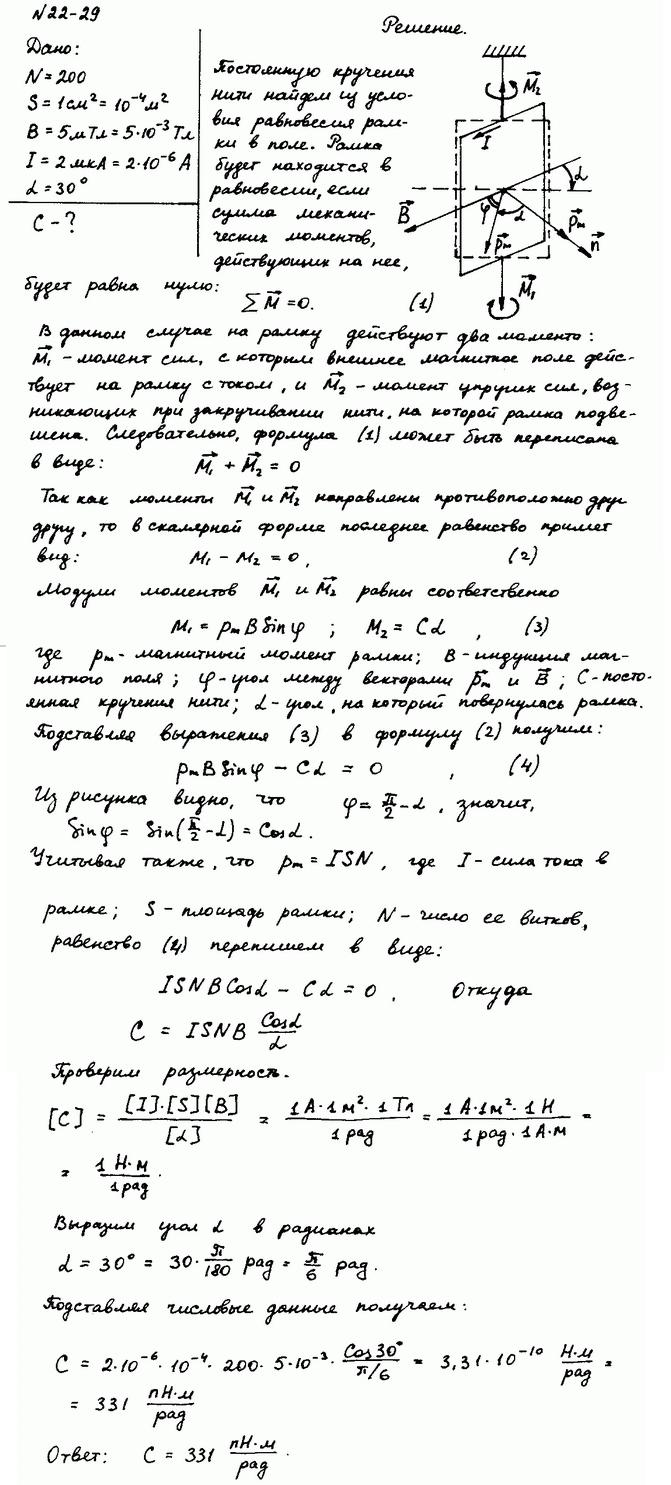 N22-29
Решение.
Дано:
N=200
S=1см²=10⁻⁴м²
B=5мТл=5·10⁻³Тл
I=2мкА=2·10⁻⁶А
α=30°
C-?
Постоянную кручения
нити найдем из усло-
вия равновесия рам-
ки в поле. Рамка
будет находится в
равновесии, если
сумма механи-
ческих моментов,
действующих на нее,
M⃗₂
I
α
B⃗
φ
α
p⃗ₘ
p⃗ₘ
n⃗
M⃗₁
будет равна нулю:
∑M⃗=0. (1)
В данном случае на рамку действуют два момента:
M⃗₁-момент сил, с которым внешнее магнитное поле дейс-
твует на рамку с током, и M⃗₂-момент упругих сил, воз-
никающих при закручивании нити, на которой рамка подве-
шена. Следовательно, формула (1) может быть переписана
в виде: M⃗₁+M⃗₂=0
Так как моменты M⃗₁ и M⃗₂ направлены противоположно друг
другу, то в скалярной форме последнее равенство примет
вид: M₁-M₂=0, (2)
Модули моментов M⃗₁ и M⃗₂ равны соответственно
M₁=pₘBSinφ ; M₂=Cα , (3)
где pₘ-магнитный момент рамки; B-индукция маг-
нитного поля; φ-угол между векторами p⃗ₘ и B⃗; C-посто-
янная кручения нити; α-угол, на который повернулась рамка.
Подставляя выражения (3) в формулу (2) получим:
pₘBSinφ-Cα=0 , (4)
Из рисунка видно, что φ=π/2-α, значит,
Sinφ=Sin(π/2-α)=Cosα.
Учитывая также, что pₘ=ISN, где I-сила тока в
рамке; S-площадь рамки; N-число ее витков,
равенство (4) перепишем в виде:
ISNBCosα-Cα=0. Откуда
C=ISNB Cosα/α
Проверим размерность.
[C]=[I]·[S][B]/[α]=1А·1м²·1Тл/1рад=1А·1м²·1Н/1рад·1А·м=
=1Н·м/1рад.
Выразим угол α в радианах
α=30°=30·π/180 рад=π/6 рад.
Подставляя числовые данные получаем:
C=2·10⁻⁶·10⁻⁴·200·5·10⁻³·Cos30°/π/6=3,31·10⁻¹⁰ Н·м/рад=
=331 пН·м/рад
Ответ: C=331 пН·м/рад.